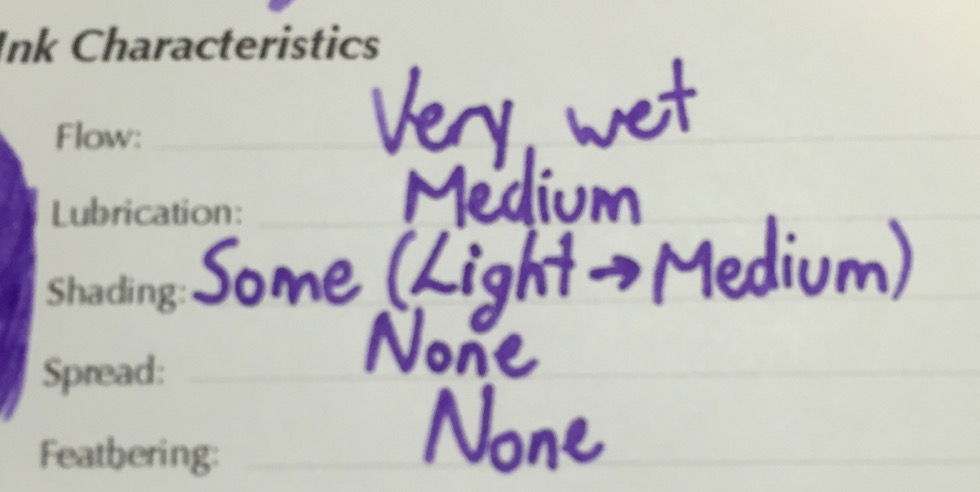 Ink Characteristics
Flow: Very wet
Lubrication: Medium
Shading: Some (Light → Medium)
Spread: None
Feathering: None